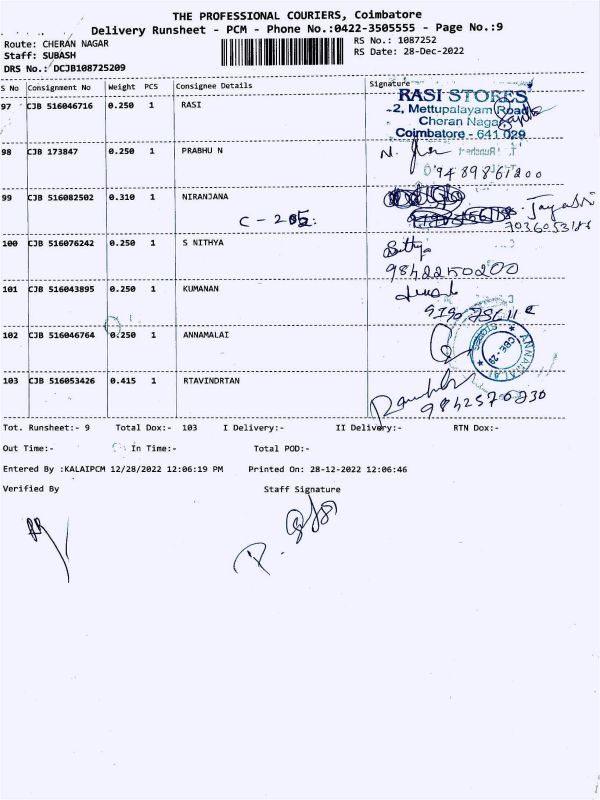 THE PROFESSIONAL COURIERS, Coimbatore
Delivery Runsheet - PCM - Phone No.:0422-3505555 - Page No.:9
Route: CHERAN NAGAR
RS No.: 1087252
Staff: SUBASH
RS Date: 28-Dec-2022
DRS No.: DCJB108725209
S No Consignment No Weight PCS Consignee Details Signature
97 CJB 516046716 0.250 1 RASI
RASI STORES
2, Mettupalayam Road
Cheran Nagar
Coimbatore - 641 029
98 CJB 173847 0.250 1 PRABHU N
9489861200
99 CJB 516082502 0.310 1 NIRANJANA
C - 205: Jayasri
7036053188
100 CJB 516076242 0.250 1 S NITHYA
9842250200
101 CJB 516043895 0.250 1 KUMANAN
102 CJB 516046764 0.250 1 ANNAMALAI
ANNAMALAI STORES CBE - 29
103 CJB 516053426 0.415 1 RTAVINDRTAN
9842576730
Tot. Runsheet:- 9 Total Dox:- 103 I Delivery:- II Delivery:- RTN Dox:-
Out Time:- In Time:- Total POD:-
Entered By :KALAIPCM 12/28/2022 12:06:19 PM Printed On: 28-12-2022 12:06:46
Verified By Staff Signature